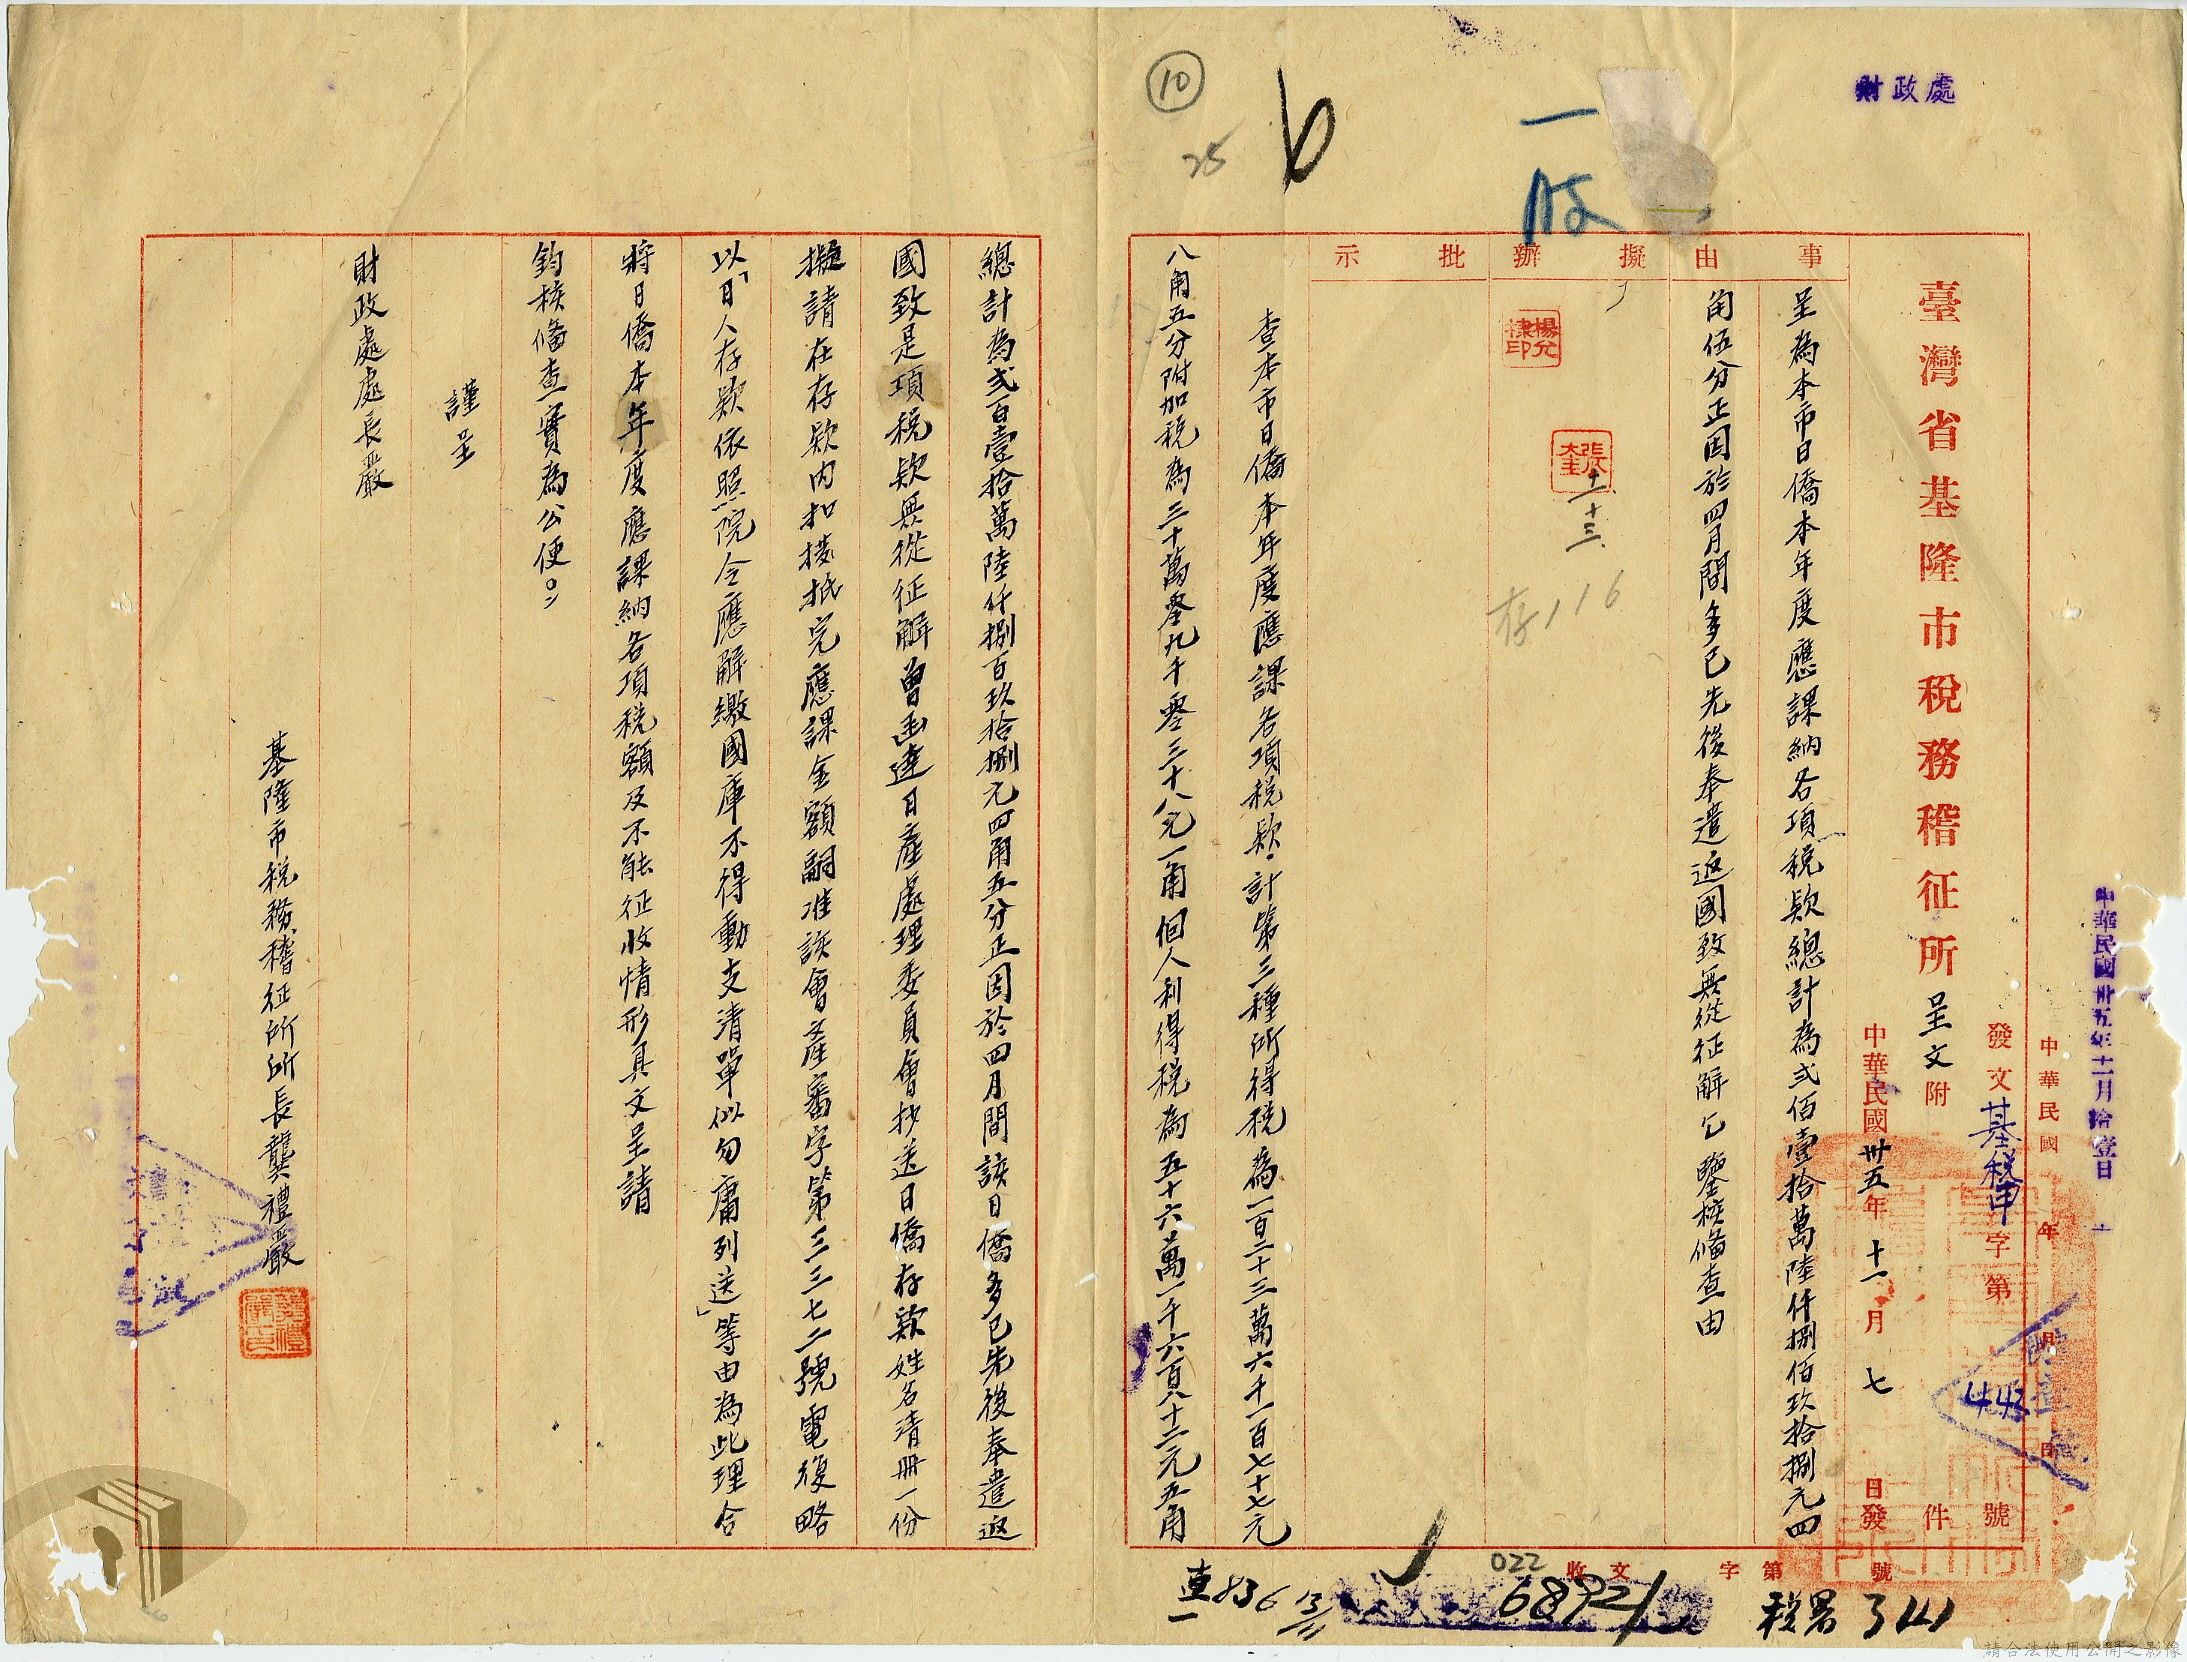 財政處
一股
10
25
中華民國卅五年十一月拾壹日
中華民國 年 月 日
發文基稅甲字第443號
臺灣省基隆市稅務稽征所呈文附件
中華民國卅五年十一月七日發
事由
擬辦
批示
呈為本市日僑本年度應課納各項稅款總計為弍佰壹拾萬陸仟捌佰玖拾捌元四
角伍分正因於四月間多已先後奉遣返國致無從征解乞 鑒核備查由
楊允棣印
十一、十三、
存116
查本市日僑本年度應課各項稅款、計第三種所得稅為一百二十三萬六千一百七十七元
八角五分附加稅為三十萬零九千零三十八元一角個人利得稅為五十六萬一千六百八十二元五角
總計為弍百壹拾萬陸仟捌百玖拾捌元四角五分正因於四月間該日僑多已先後奉遣返
國致是項稅款無從征解曾函達日產處理委員會抄送日僑存款姓名清冊一份
擬請在存款內扣撥抵完應課金額嗣准該會產審字第三三七二號電復略
以「日人存款依照院令應解繳國庫不得動支清單似勿庸列送」等由為此理合
將日僑本年度應課納各項稅額及不能征收情形具文呈請
鈞核備查實為公便。
謹呈
財政處處長嚴
基隆市稅務稽征所所長龔禮嚴
收文 字第 號
022
68921
稅署
查一836
請合法使用公開之影像